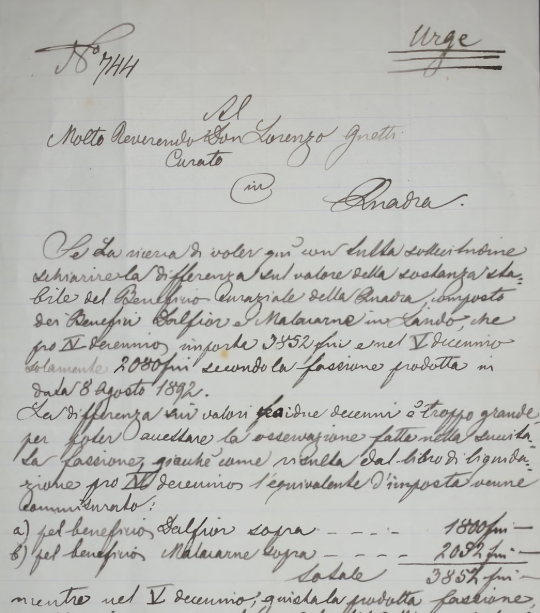 No 744
Urge
Al
Molto Reverendo Don Lorenzo Gnetti
Curato
in
Quadra.
Se La ricerca di voler qui con tutta sollecitudine
schiarire la differenza sul valore della sostanza sta-
bile del Beneficio Curaziale della Quadra, composto
dei Benefici Dalfior e Malacarne in Lando, che
pro IV decennio, importa 3852 fni e nel V decennio
solamente 2080 fni secondo la fassione prodotta in
data 8 Agosto 1892.
La differenza sui valori fra i due decenni è troppo grande
per poter accettare la osservazione fatta nella succita-
ta fassione, giacchè come risulta dal libro di liquida-
zione pro IV decennio l'equivalente d'imposta venne
commisurato:
a) pel beneficio Dalfior sopra - - - - 1800 fni —
b) pel beneficio Malacarne sopra - - - - 2052 fni —
totale 3852 fni —
mentre nel V decennio, giusta la prodotta fassione